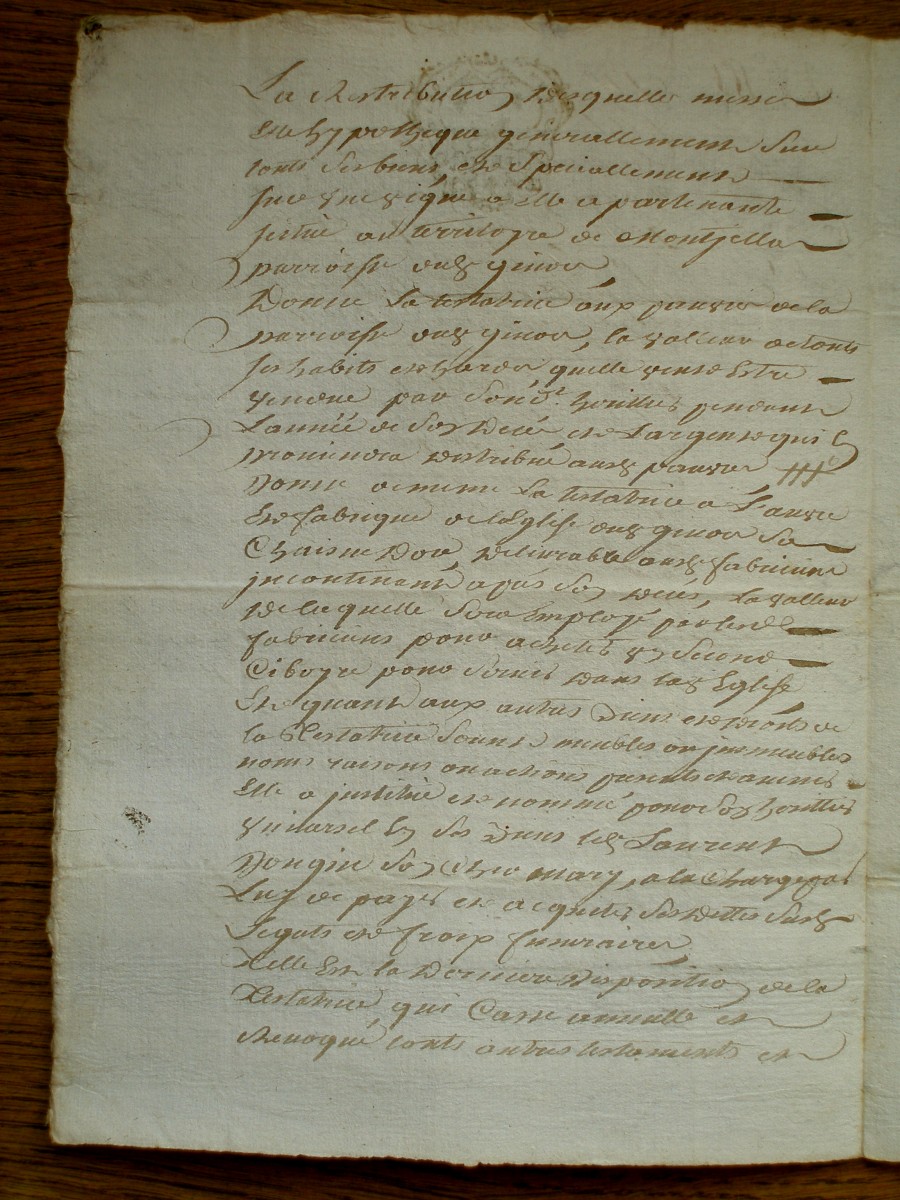 La Restribution desquelles messes
Elle hypotheque generallement sur
touts ses biens et Speciallement
sur une vigne a elle apartenante
situé au territoyre de Montjella
parroisse dud ginou
Donne La testatrice aux pauvres de la
parroisse dud ginou, la valleur de touts
ses habits et hardes quelle veut Estre
vendue par sond.t heritier pendant
L'année de son decés et L'argent qui En
proviendra distribué auxd pauvres
Donne de meme La testatrice a L'œuvre
Et fabrique de l'Eglise dud ginou sa
Chaisne Dor delivrable auxd fabriciens
incontinent apres son decés, La valleur
de laquelle sera Employé par lesd
fabriciens pour acheter un Second
Ciboyre pour servir dans lad Eglise
Et quant aux autres Biens et droits de
la Testatrice Soient meubles ou immeubles
noms raisons ou actions presents et a venir
Elle a jnstitué et nommé pour son heritier
universel En ses Biens led Laurent
Dongin son Cher mary, a la charge par
Luy de payer et acquiter ses dettes susd
Legats et fraix funeraires
telle Est la Derniere disposition de la
Testatrice qui Casse annulle et
Revoque touts autres testaments et